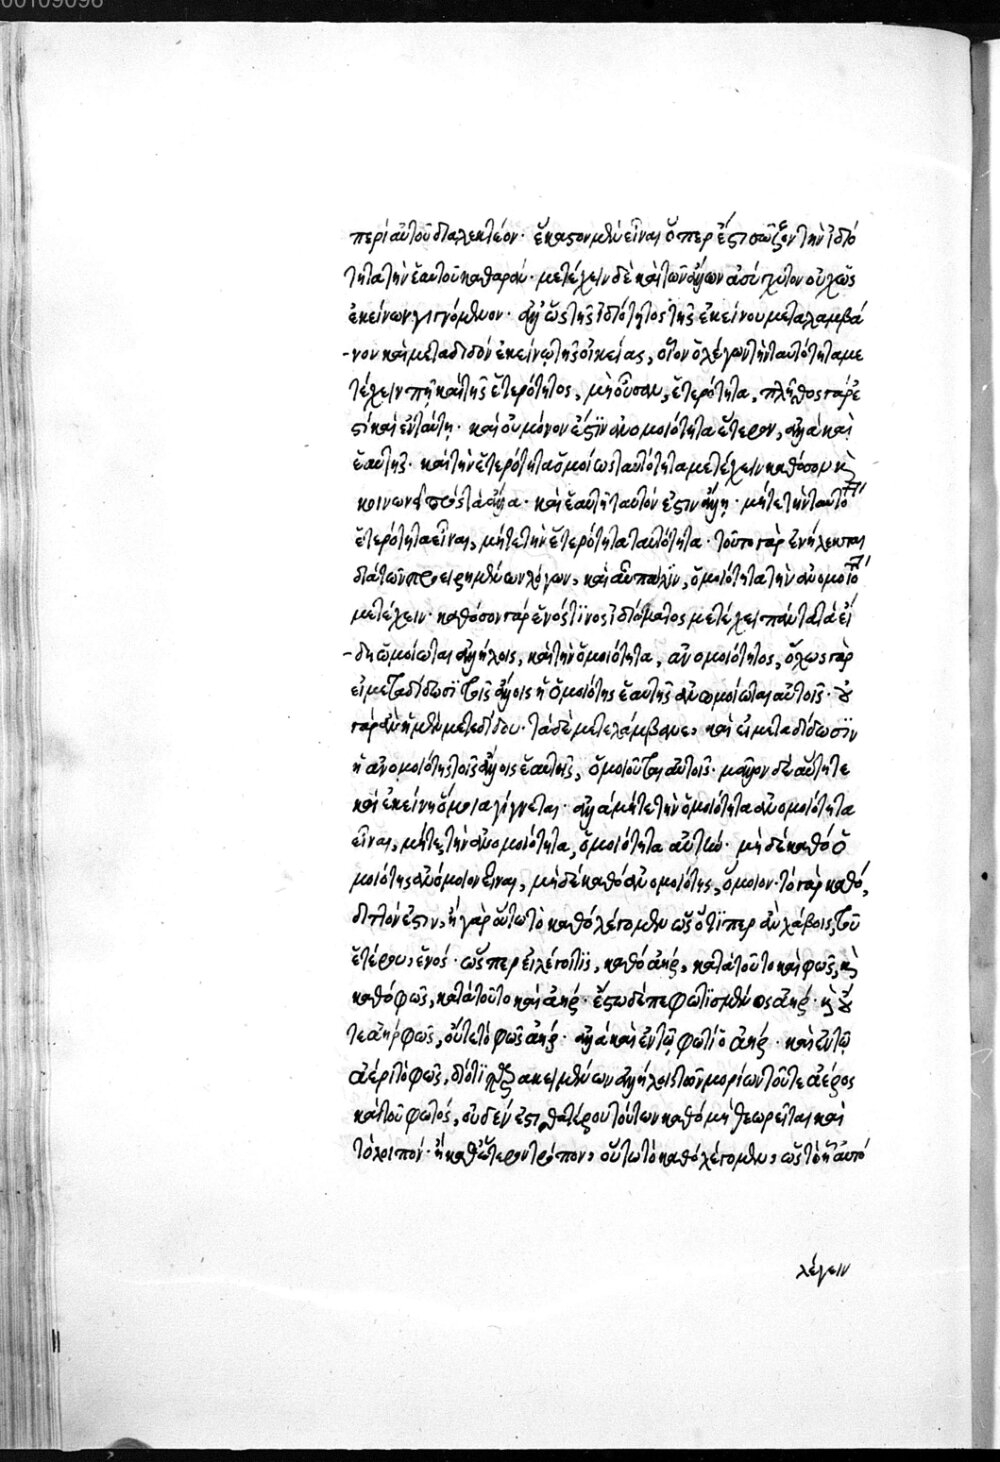 00109096
περὶ αὐτοῦ διαλεκτέον· ἕκαστον μὲν εἶναι ὅπερ ἐστὶ σῶζον τὴν ἰδιό
τητα τὴν ἑαυτοῦ καθαράν· μετέχειν δὲ καὶ τῶν ἄλλων ἀσύγχυτον οὐχ ὡς
ἐκείνων γιγνόμενον· ἀλλ' ὡς τῆς ἰδιότητος τῆς ἐκείνου μεταλαμβά
-νον καὶ μεταδιδὸν ἐκείνῳ τῆς οἰκείας, οἷον ὁ λέγων τὴν ταυτότητα με
τέχειν πῇ καὶ τῆς ἑτερότητος, μὴ οὖσαν, ἑτερότητα, πλῆθος γάρ ἐ
στι καὶ ἐν ταύτῃ· καὶ οὐ μόνον ἐστὶν ἀνομοιότητα ἕτερον, ἀλλὰ καὶ
ἑαυτῆς· καὶ τὴν ἑτερότητα ὁμοίως ταυτότητα μετέχειν καθόσον καὶ
κοινωνεῖ πρὸς τὰ ἄλλα· καὶ ἑαυτῇ ταυτόν ἐστιν ἄλλῃ· μήτε τὴν ταυτότητα
ἑτερότητα εἶναι, μήτε τὴν ἑτερότητα ταυτότητα· τοῦτο γὰρ ἐνήλεκται
διὰ τῶν προειρημένων λόγων, καὶ αὖ πάλιν, ὁμοιότητα τὴν ἀνομοιότητα
μετέχειν· καθόσον γὰρ ἑνός τινος ἰδιώματος μετέχει πάντα τὰ εἴ
-δη ὡμοίωται ἀλλήλοις, καὶ τὴν ὁμοιότητα, ἀνομοιότητος, ὅλως γὰρ
εἰ μεταδίδωσι τοῖς ἄλλοις ἡ ὁμοιότης ἑαυτῆς ἀνωμοίωται αὐτοῖς· οὐ
γὰρ ἂν ἡ μὲν μετεδίδου· τὰ δὲ μετελάμβανε, καὶ εἰ μεταδίδωσιν
ἡ ἀνομοιότης τοῖς ἄλλοις ἑαυτῆς, ὁμοιοῦται αὐτοῖς· μᾶλλον δὲ αὕτη τε
καὶ ἐκείνη ὅμοια γίγνεται· ἀλλὰ μήτε τὴν ὁμοιότητα ἀνομοιότητα
εἶναι, μήτε τὴν ἀνομοιότητα, ὁμοιότητα αὐτῶν· μηδὲ καθὸ ὁ
μοιότης ἀνόμοιον εἶναι, μηδὲ καθὸ ἀνομοιότης, ὅμοιον· τὸ γὰρ καθό,
διττόν ἐστιν, ἢ γὰρ οὕτω τὸ καθὸ λέγομεν ὡς ὅτι περ ἂν λάβοις, τοῦ
ἑτέρου, ἑνός· ὥσπερ εἰ λέγοι τις, καθὸ ἀήρ, κατὰ τοῦτο καὶ φῶς, καὶ
καθὸ φῶς, κατὰ τοῦτο καὶ ἀήρ· ἔξω δὲ πεφωτισμένος ἀήρ· καὶ οὔ
τε ἀὴρ φῶς, οὔτε τὸ φῶς ἀήρ· ἀλλὰ καὶ ἐν τῷ φωτὶ ὁ ἀήρ· καὶ ἐν τῷ
ἀέρι τὸ φῶς, διότι παρακειμένων ἀλλήλοις τῶν μορίων τοῦ τε ἀέρος
καὶ τοῦ φωτός, οὐδέν ἐστι θατέρου τούτων καθὸ μὴ θεωρεῖται καὶ
τὸ λοιπόν· ἢ καθ' ἕτερον τρόπον, οὕτω τὸ καθὸ λέγομεν, ὡς τὸ ᾗ αὐτό
λέγειν